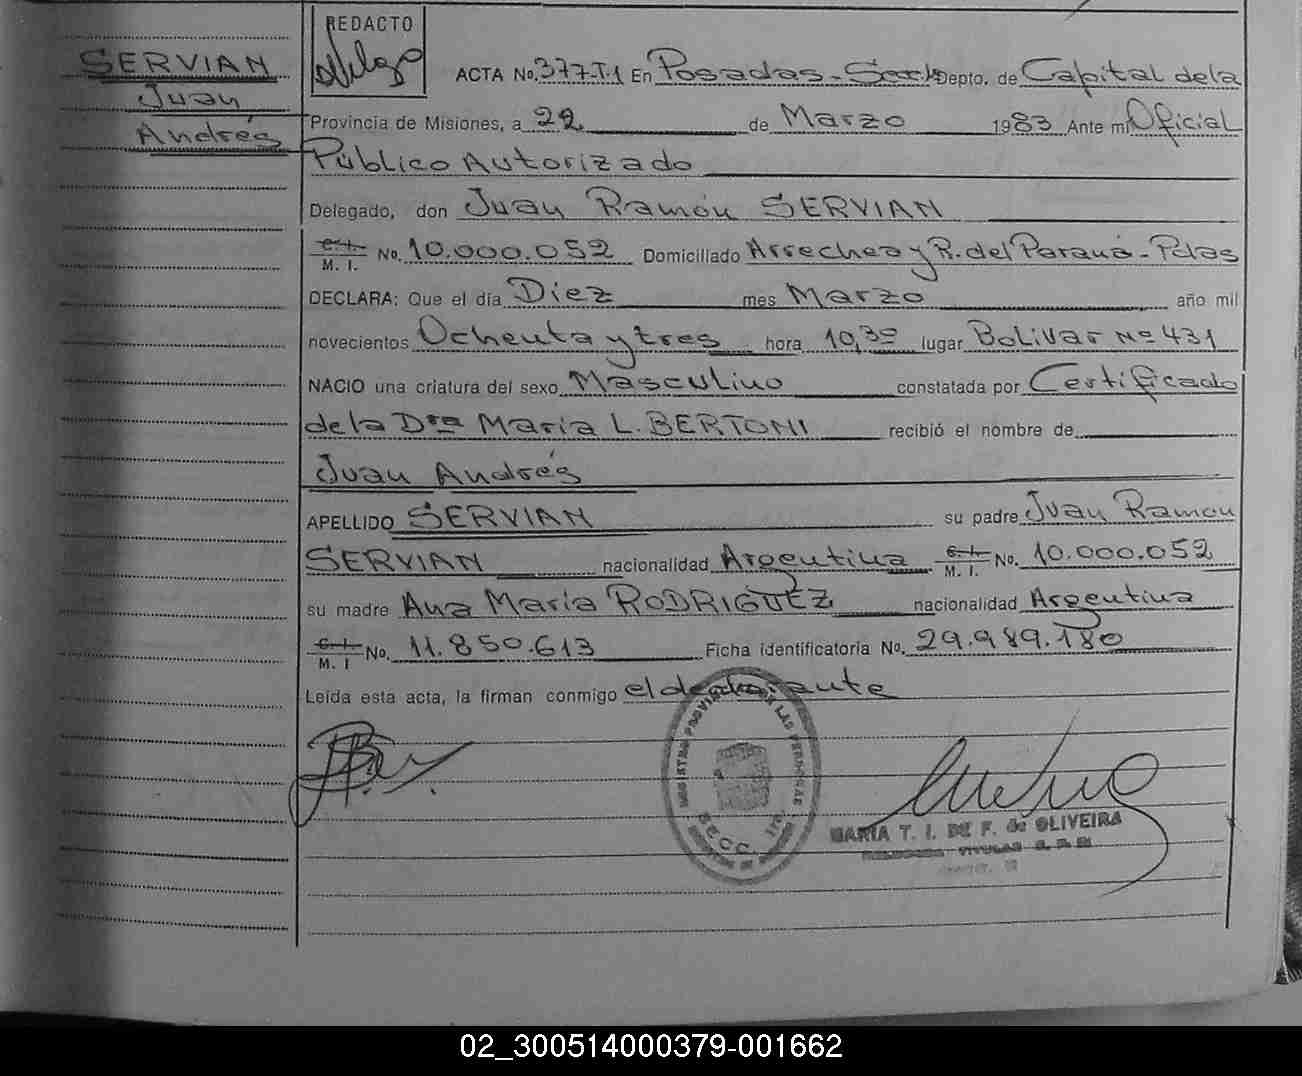 SERVIAN
Juan
Andrés
REDACTO
ACTA No. 377-T.1 En Posadas - Depto. de Capital de la
Provincia de Misiones, a 22 de Marzo 1983 Ante mi Oficial
Público Autorizado
Delegado, don Juan Ramón SERVIAN
C.I. M. I. No. 10.000.052 Domiciliado Arrechea y R. del Paraná - Pdas
DECLARA: Que el día Diez mes Marzo año mil
novecientos Ochenta y tres hora 10,30 lugar Bolivar Nº 431
NACIO una criatura del sexo Masculino constatada por Certificado
de la Dra María L. BERTONI recibió el nombre de
Juan Andrés
APELLIDO SERVIAN su padre Juan Ramon
SERVIAN nacionalidad Argentina C.I. M. I. No. 10.000.052
su madre Ana María RODRIGUEZ nacionalidad Argentina
C.I. M. I No. 11.850.613 Ficha identificatoria No. 29.989.180
Leída esta acta, la firman conmigo el declarante
REGISTRO PROVINCIAL DE LAS PERSONAS
SECC.
MARIA T. I. DE F. de OLIVEIRA
TITULAR
02_300514000379-001662